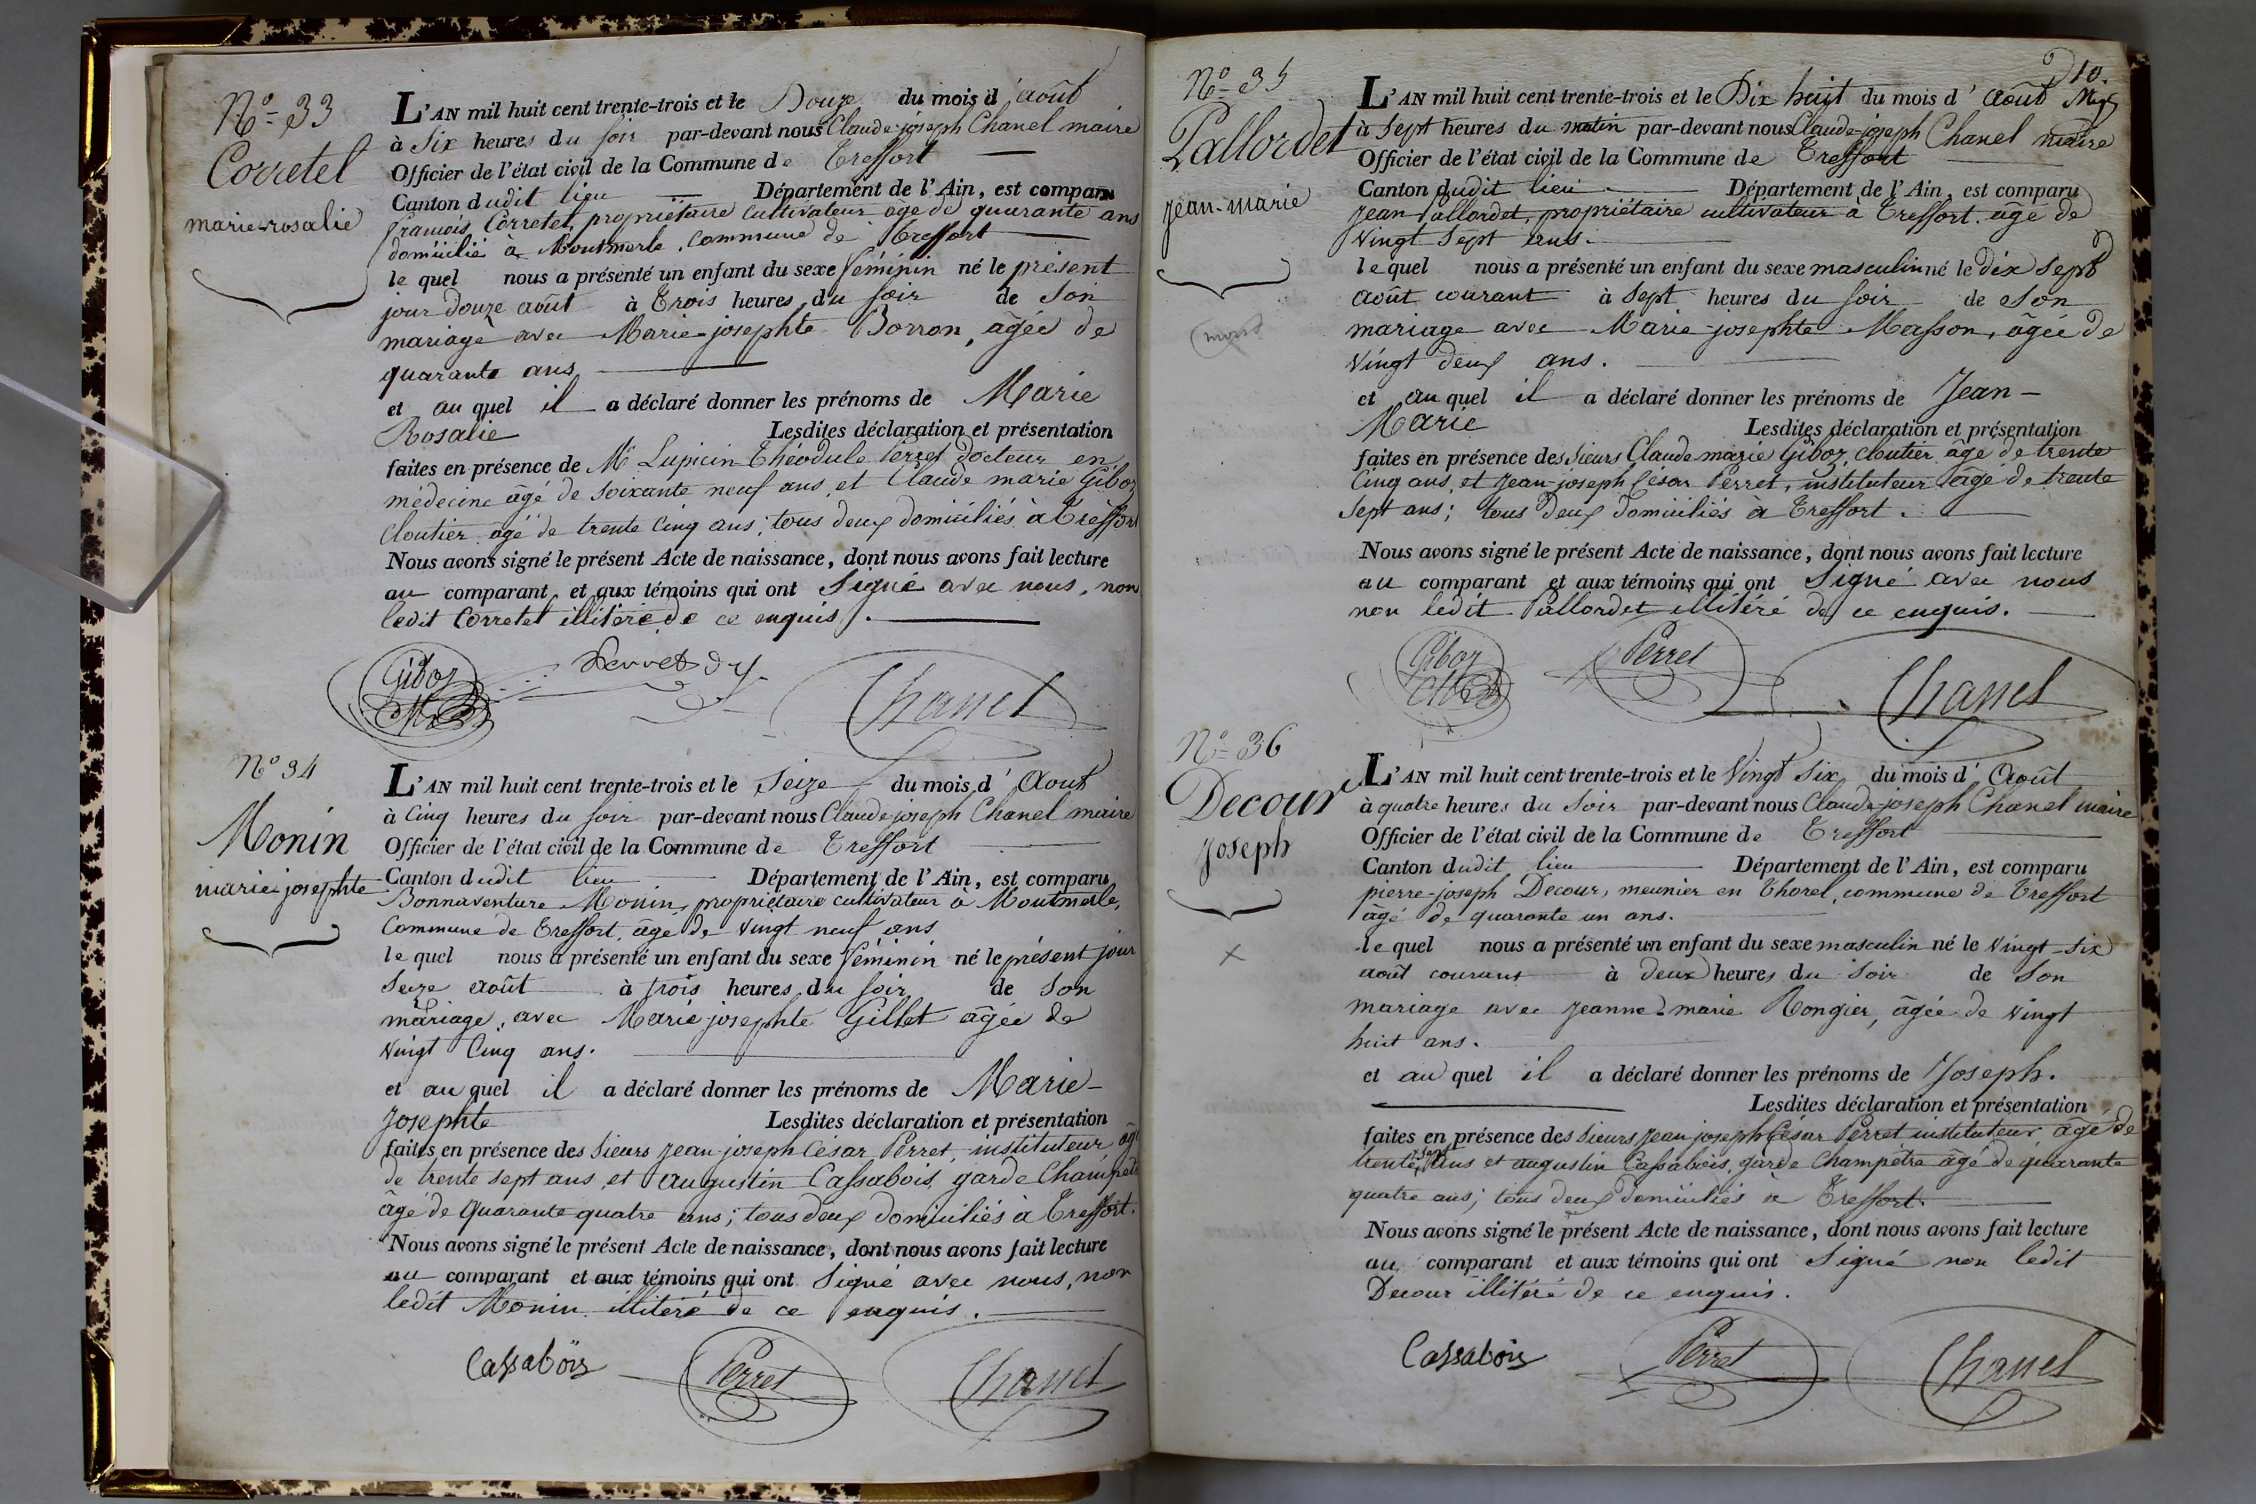 N.º 33
Corretel
marie-rosalie
L'AN mil huit cent trente-trois et le Douze du mois d'août
à Six heures du soir par-devant nous Claude-joseph Chanel maire
Officier de l'état civil de la Commune de Treffort
Canton dudit lieu Département de l'Ain, est comparu
françois Corretel, propriétaire cultivateur âgé de quarante ans
domicilié à Montmerle, commune de Treffort
le quel nous a présenté un enfant du sexe féminin né le présent
jour douze août à Trois heures du soir de Son
mariage avec Marie-josephte Borron, âgée de
quarante ans
et au quel il a déclaré donner les prénoms de Marie
Rosalie Lesdites déclaration et présentation
faites en présence de Mr Lupicin Théodule Perret docteur en
médecine âgé de soixante neuf ans, et Claude marie Giboz
Cloutier âgé de trente Cinq ans; tous deux domiciliés à Treffort
Nous avons signé le présent Acte de naissance, dont nous avons fait lecture
au comparant et aux témoins qui ont Signé avec nous, non
ledit Corretel illitéré de ce enquis.
Giboz
Perret
Chanel
N.º 34
Monin
marie-josephte
L'AN mil huit cent trente-trois et le Seize du mois d'Août
à Cinq heures du soir par-devant nous Claude-joseph Chanel maire
Officier de l'état civil de la Commune de Treffort
Canton dudit lieu Département de l'Ain, est comparu
Bonnaventure Monin, propriétaire cultivateur à Montmerle,
Commune de Treffort, âgé de vingt neuf ans
le quel nous a présenté un enfant du sexe féminin né le présent jour
Seize août à trois heures du soir de Son
mariage, avec Marie josephte Gillet âgée de
Vingt Cinq ans.
et au quel il a déclaré donner les prénoms de Marie-
Josephte Lesdites déclaration et présentation
faites en présence des Sieurs jean-joseph César Perret, instituteur, âgé
de trente sept ans, et augustin Cassabois, garde Champetre
âgé de Quarante quatre ans; tous deux domiciliés à Treffort.
Nous avons signé le présent Acte de naissance, dont nous avons fait lecture
au comparant et aux témoins qui ont Signé avec nous, non
ledit Monin illitéré de ce enquis.
Cassabois
Perret
Chanel
10.
N.º 35
Pallordet
jean-marie
mort
L'AN mil huit cent trente-trois et le Dix huit du mois d'Août
à Sept heures du matin par-devant nous Claude-joseph Chanel maire
Officier de l'état civil de la Commune de Treffort
Canton dudit lieu Département de l'Ain, est comparu
Jean Pallordet, propriétaire cultivateur à Treffort, âgé de
Vingt Sept ans.
le quel nous a présenté un enfant du sexe masculin né le dix Sept
août courant à Sept heures du soir de Son
mariage avec Marie-josephte Masson, âgée de
Vingt deux ans.
et au quel il a déclaré donner les prénoms de Jean-
Marie Lesdites déclaration et présentation
faites en présence des Sieurs Claude marie Giboz, cloutier âgé de trente
Cinq ans, et Jean-joseph César Perret, instituteur âgé de trente
Sept ans; tous deux domiciliés à Treffort.
Nous avons signé le présent Acte de naissance, dont nous avons fait lecture
au comparant et aux témoins qui ont Signé avec nous
non ledit Pallordet illitéré de ce enquis.
Giboz
Perret
Chanel
N.º 36
Decour
Joseph
x
L'AN mil huit cent trente-trois et le Vingt Six du mois d'Août
à quatre heures du Soir par-devant nous Claude-joseph Chanel maire
Officier de l'état civil de la Commune de Treffort
Canton dudit lieu Département de l'Ain, est comparu
pierre-joseph Decour, meunier en Thorel, commune de Treffort
âgé de quarante un ans.
le quel nous a présenté un enfant du sexe masculin né le Vingt-Six
août courant à deux heures du Soir de Son
mariage avec jeanne-marie Rongier, âgée de vingt
huit ans.
et au quel il a déclaré donner les prénoms de Joseph.
Lesdites déclaration et présentation
faites en présence des Sieurs jean joseph César Perret instituteur âgé de
trente sept ans et augustin Cassabois, garde Champêtre âgé de quarante
quatre ans; tous deux domiciliés à Treffort.
Nous avons signé le présent Acte de naissance, dont nous avons fait lecture
au comparant et aux témoins qui ont Signé non ledit
Decour illitéré de ce enquis.
Cassabois
Perret
Chanel